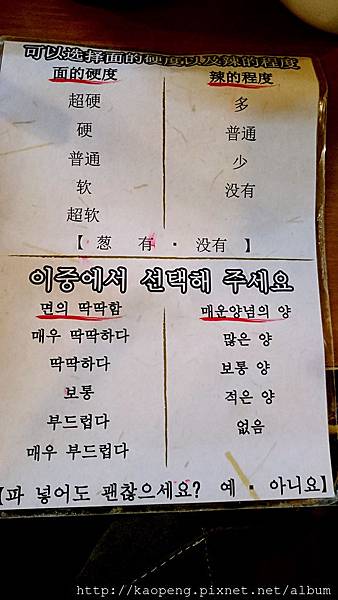 可以选择面的硬度以及辣的程度
面的硬度 辣的程度
超硬 多
硬 普通
普通 少
软 没有
超软
【 葱 有 · 没有 】
이중에서 선택해 주세요
면의 딱딱함 매운양념의 양
매우 딱딱하다 많은 양
딱딱하다 보통 양
보통 적은 양
부드럽다 없음
매우 부드럽다
【파 넣어도 괜찮으세요? 예 · 아니요】
http://kaopeng.pixnet.net/album